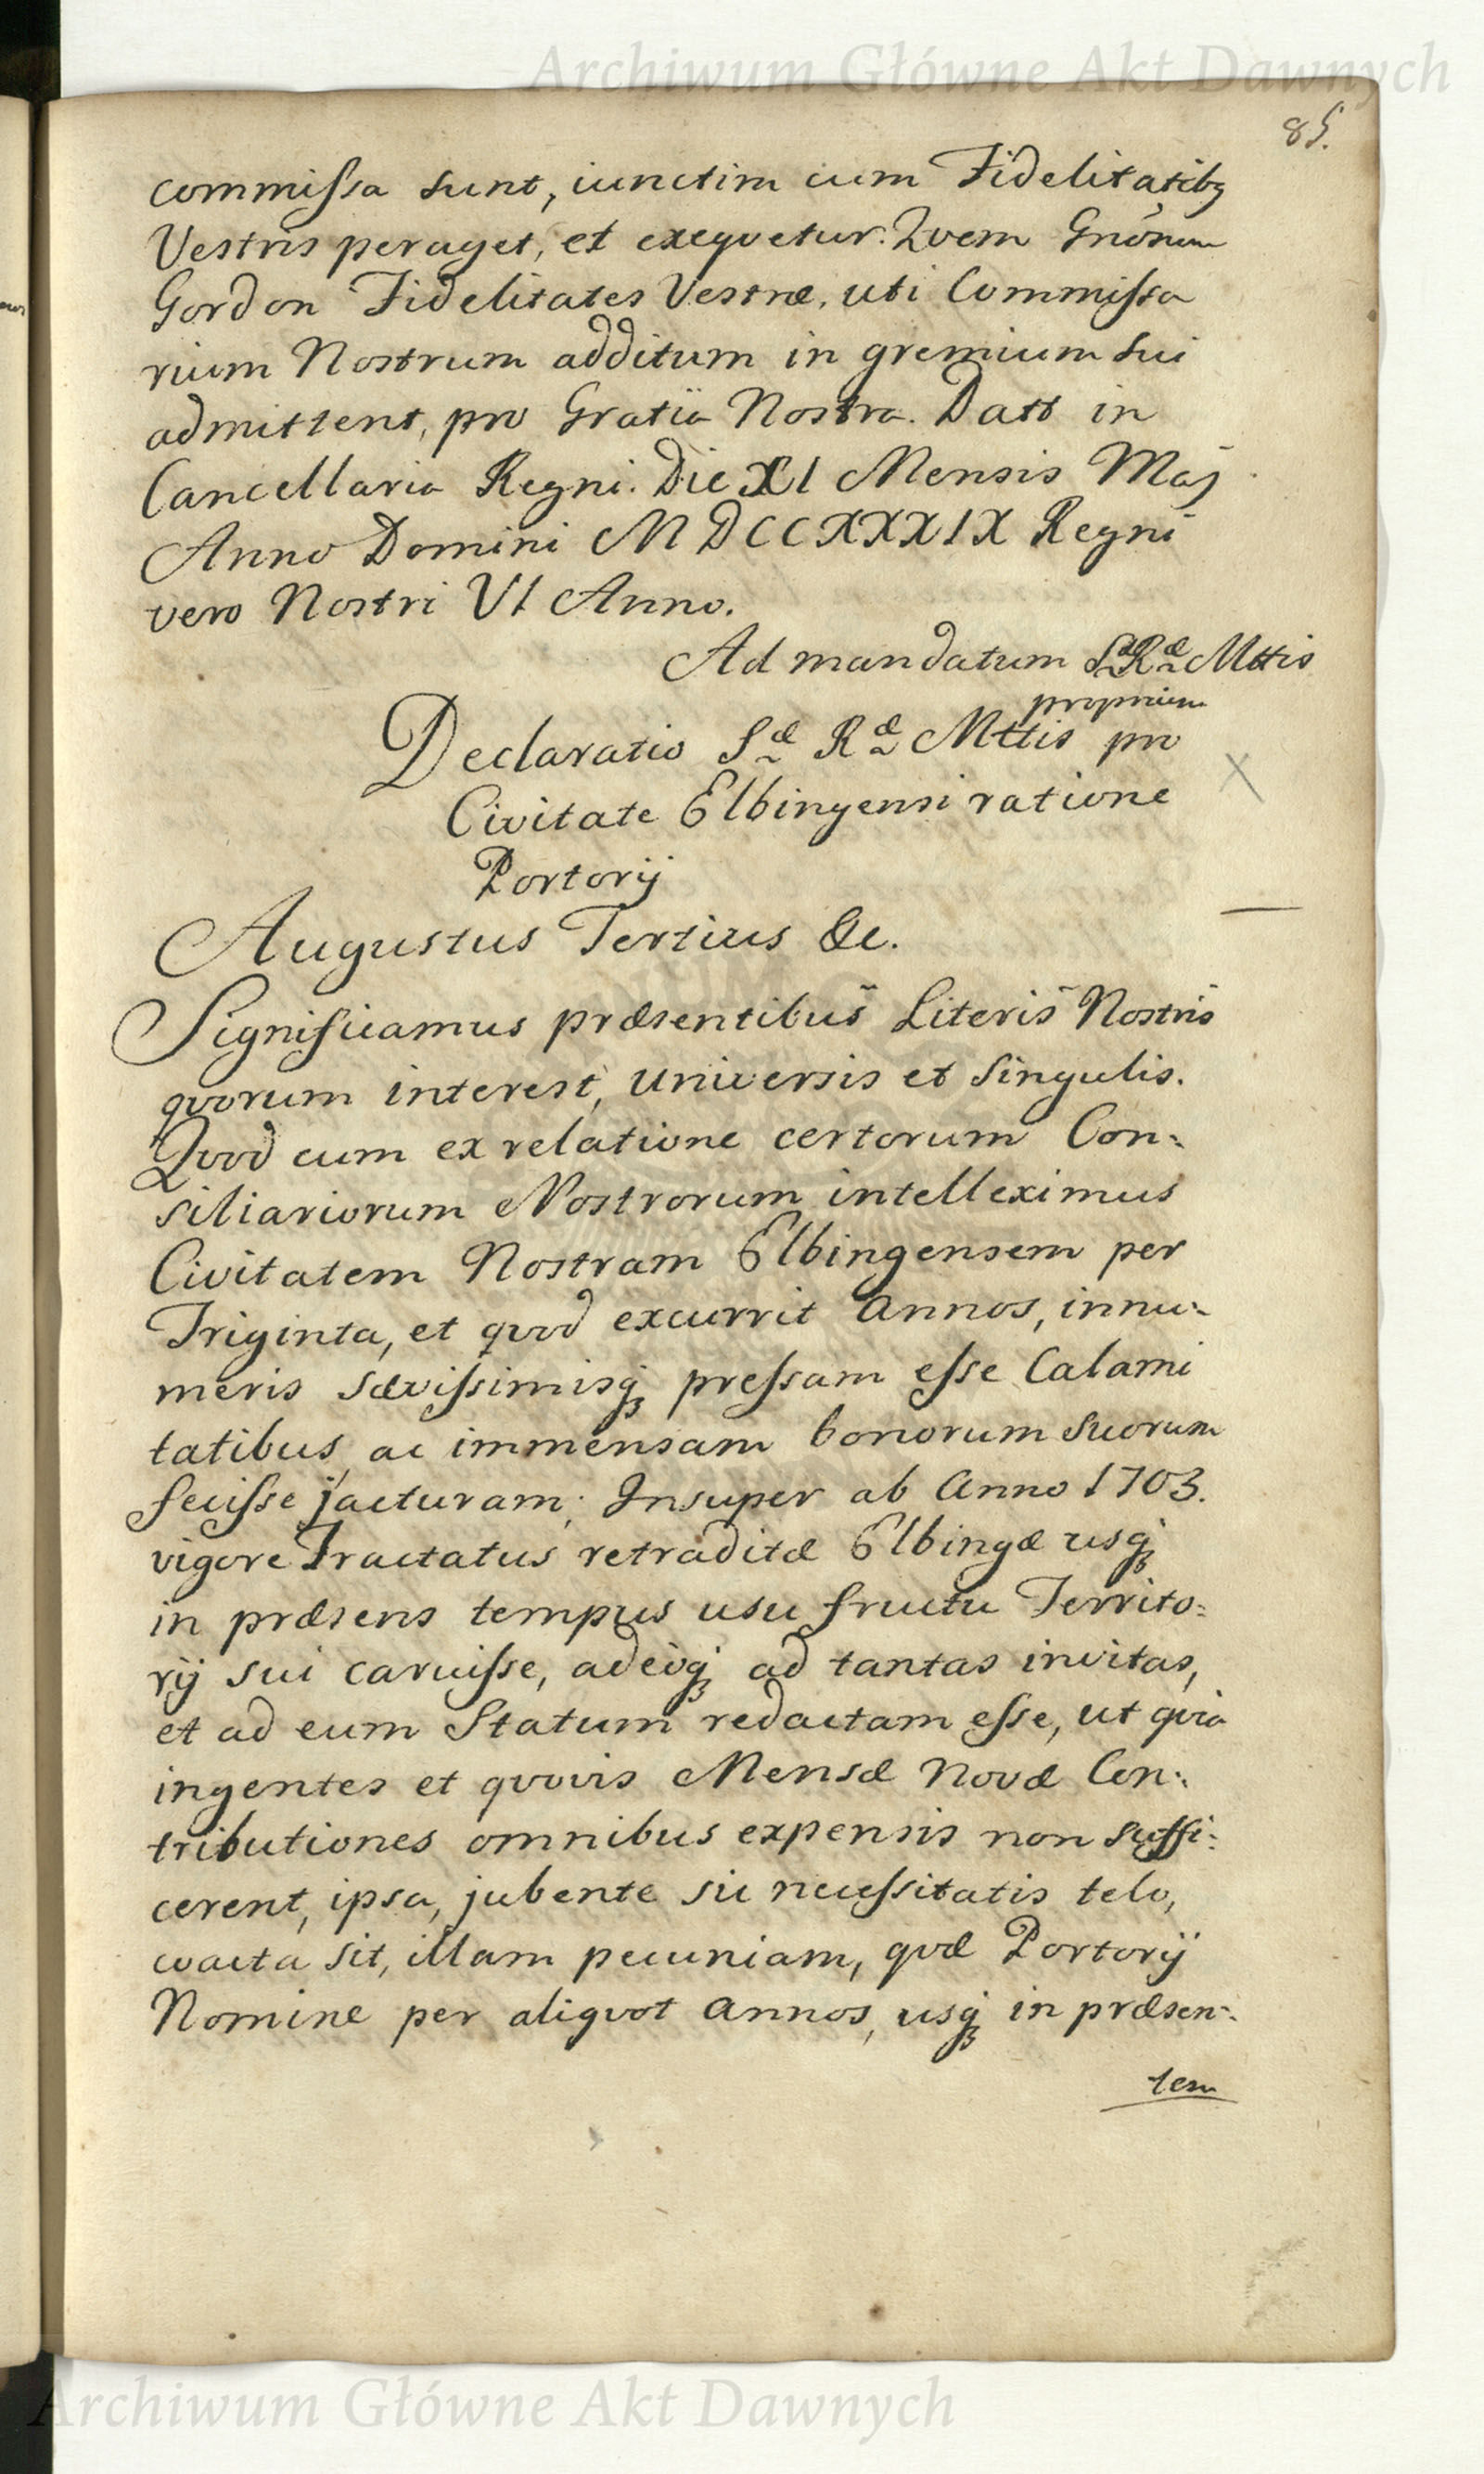 Archiwum Główne Akt Dawnych
85.
commissa sunt, iunctim cum Fidelitatibq
Vestris peraget, et exequetur. Quem Gnõsum
Gordon Fidelitates Vestræ, uti Commissa
rium Nostrum additum in gremium sui
admittent, pro Gratia Nostra. Datt in
Cancellaria Regni. Die XI Mensis Maj
Anno Domini MDCCXXXIX Regni
vero Nostri VI Anno.
Ad mandatum Sæ Ræ Mttis
proprium
Declaratio Sæ Ræ Mttis pro
Civitate Elbingensi ratione
Portorij
Augustus Tertius &c.
Significamus præsentibus Literis Nostris
quorum interest, universis et singulis.
Quod cum ex relatione certorum Con:
siliariorum Nostrorum intelleximus
Civitatem Nostram Elbingensem per
Triginta, et quod excurrit annos, innu:
meris sævissimisq pressam esse Calami
tatibus ac immensam bonorum suorum
fecisse jacturam; Insuper ab Anno 1703.
vigore Tractatus retraditæ Elbingæ usq
in præsens tempus usu fructu Territo:
rij sui caruisse, adeoq ad tantas incitas,
et ad eum Statum redactam esse, ut quia
ingentes et quovis Mensæ novæ Con:
tributiones omnibus expensis non suffi:
cerent, ipsa, jubente sic necessitatis telo,
coacta sit, illam pecuniam, quæ Portorij
Nomine per aliquot annos, usq in præsen:
tem
Archiwum Główne Akt Dawnych